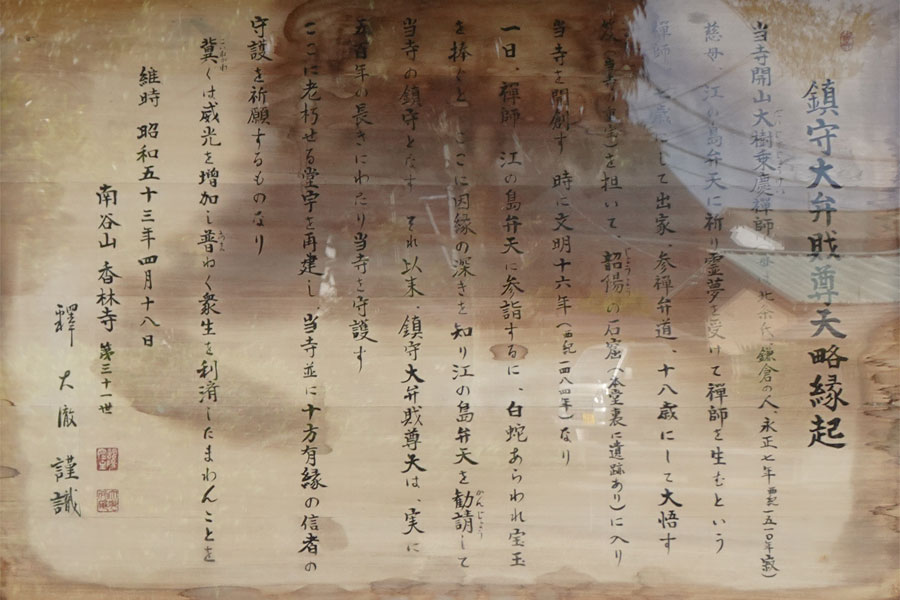 鎮守大弁戝尊天略縁起
当寺開山大樹乗慶禅師 北条氏、鎌倉の人、永正七年西紀一五一〇年寂)
慈母、江の島弁天に祈り霊夢を受けて禅師を生むという
禅師 歳にして出家、参禅弁道、十八歳にして大悟す
を担いて、韶陽の石窟(本堂裏に遺跡あり)に入り
当寺を開創す 時に文明十六年(西紀一四八四年)なり
一日、禅師 江の島弁天に参詣するに、白蛇あらわれ宝玉
を捧ぐと ここに因縁の深きを知り江の島弁天を勧請して
当寺の鎮守となす それ以来 鎮守大弁戝尊天は、実に
五百年の長きにわたり当寺を守護す
ここに老朽せる堂宇を再建し 当寺並に十方有縁の信者の
守護を祈願するものなり
冀くは威光を増加し普ねく衆生を利済したまわんことを
維時 昭和五十三年四月十八日
南谷山 香林寺 第三十一世
釋 大徹 謹識